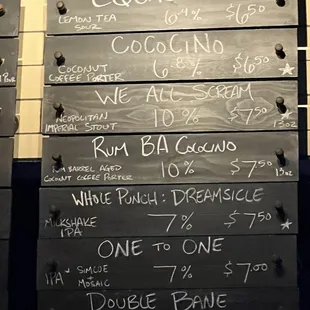 LEMON TEA
SOUR
$6.50
COCOCINO
COCONUT
COFFEE PORTER
6.8%
$6.50
WE ALL SCREAM
NEOPOLITAN
IMPERIAL STOUT
10%
$7.50
13oz
RUM BA COCOCINO
RUM BARREL AGED
COCONUT COFFEE PORTER
10%
$7.50
13oz
WHOLE PUNCH: DREAMSICLE
MILKSHAKE
IPA
7%
$7.50
ONE TO ONE
IPA
SIMCOE
+
MOSAIC
7%
$7.00
DOUBLE BANE